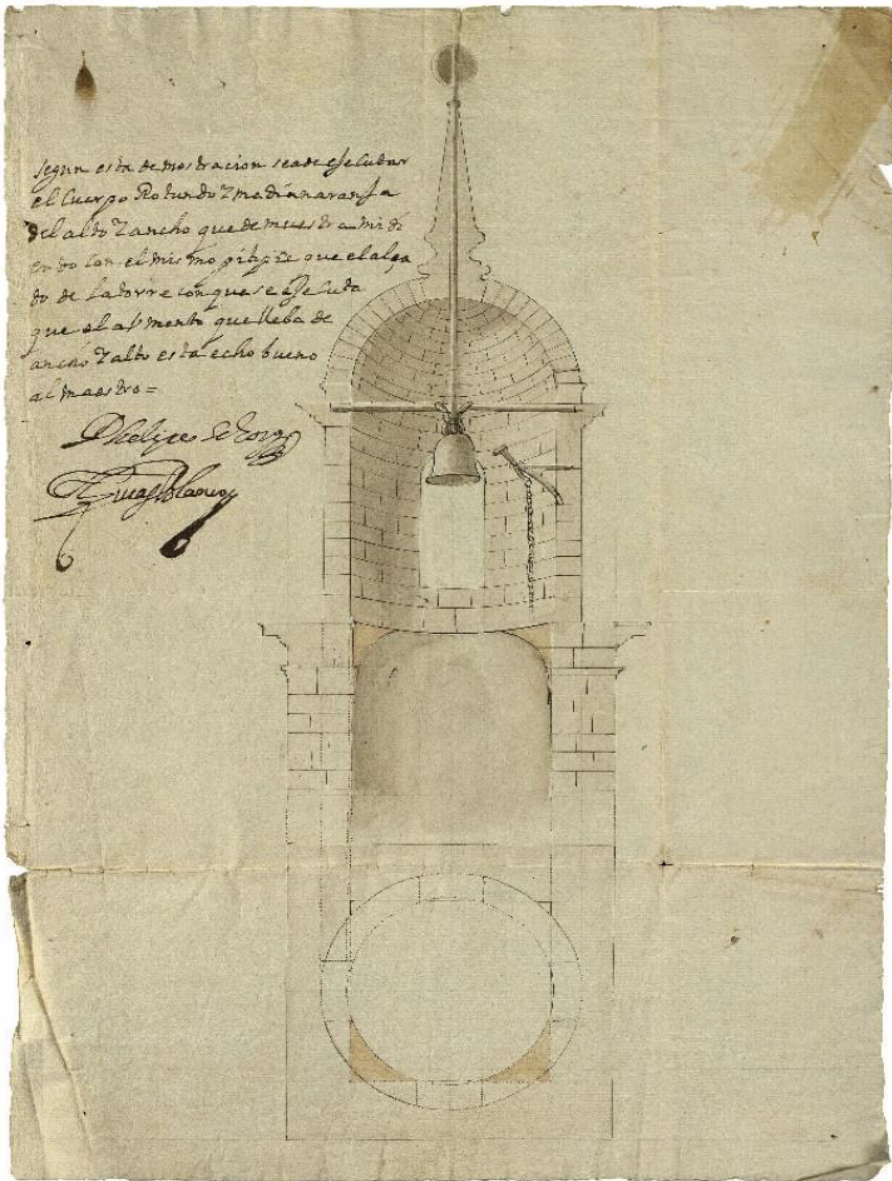 segun esta demostracion seade eJeCutar
el Cuerpo Rotundo Z madianaranJa
del alto Z ancho que demuestra midi
endo con el mismo pitipie que el alça
do de latorre conque se eJeCuta
que el aumento que lleba de
ancho Z alto esta echo bueno
al maestro =
Phelipe